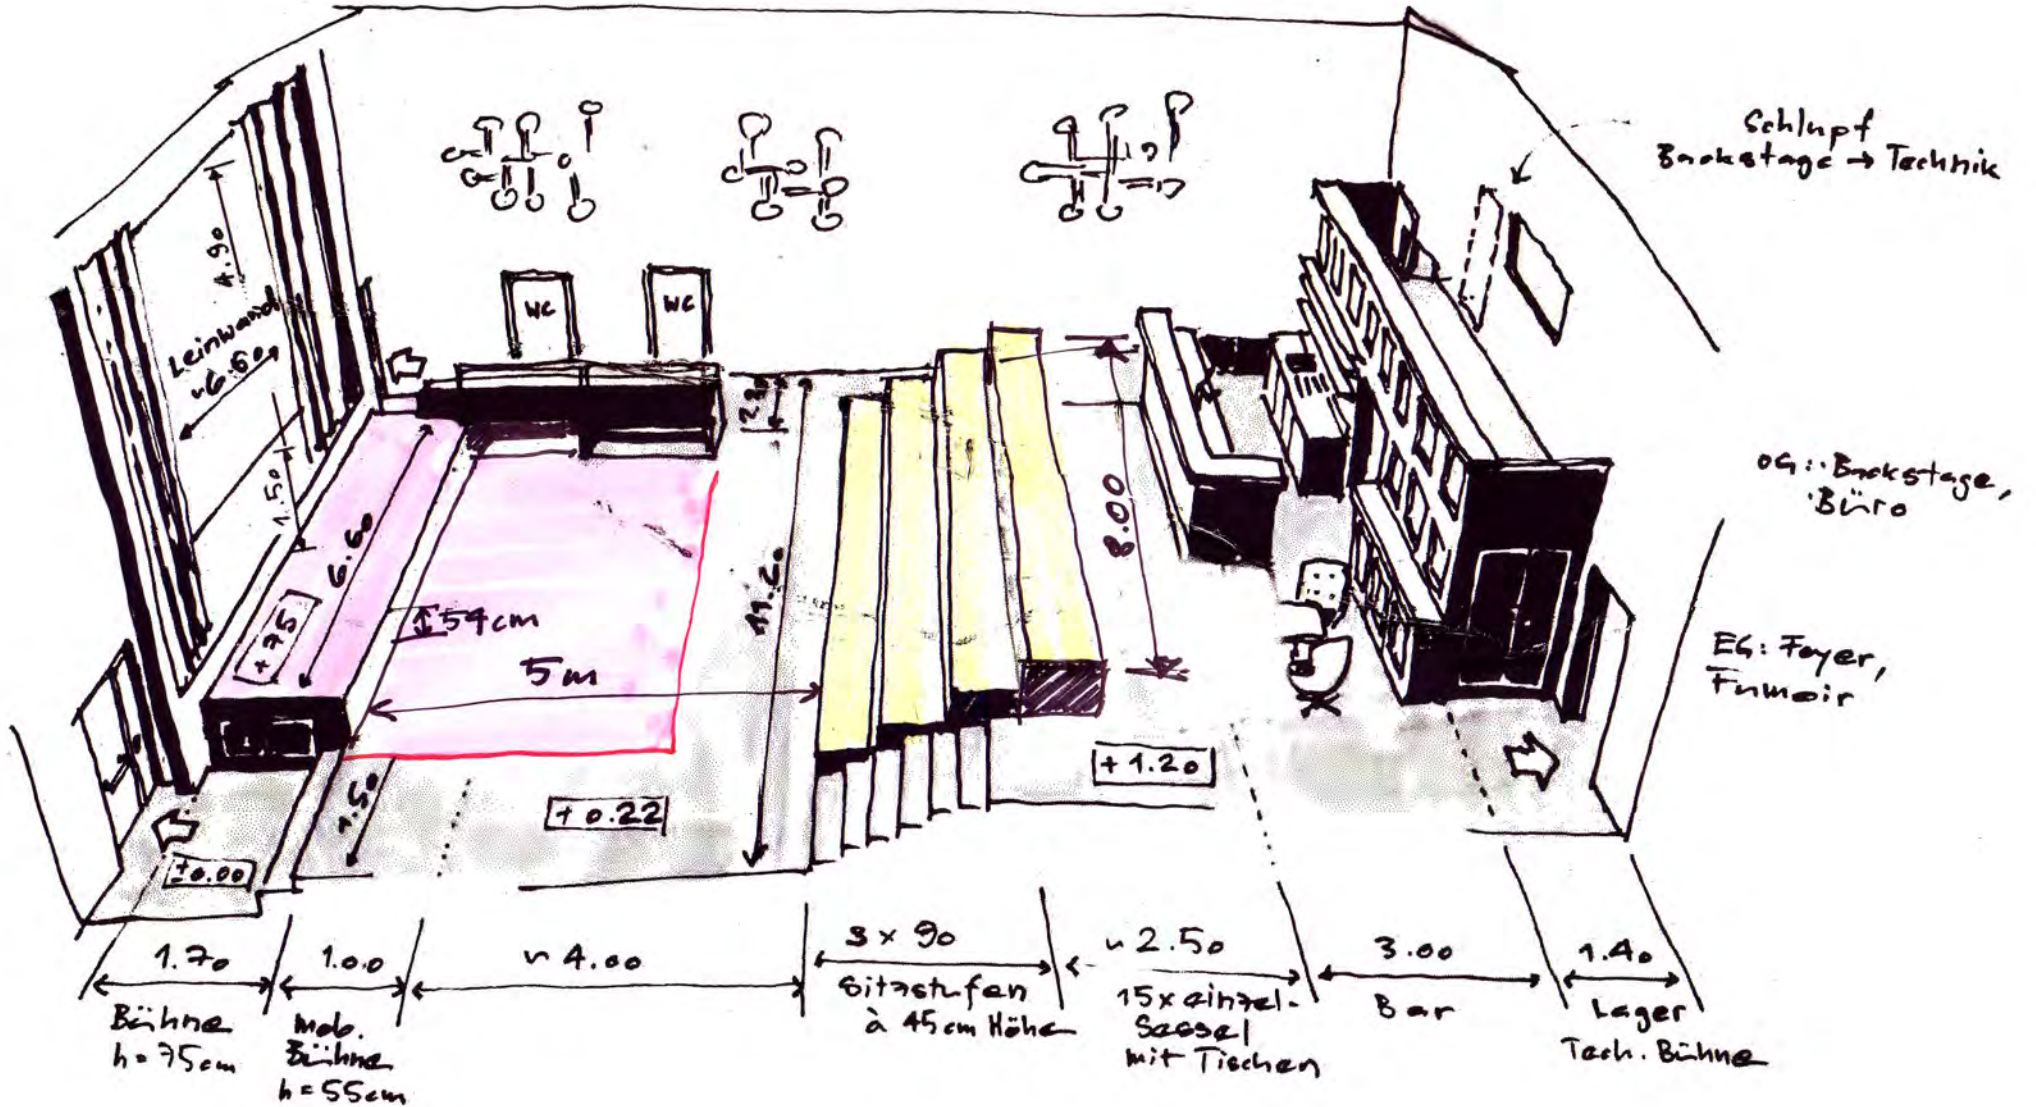 Schlupf
Backstage → Technik
4.90
Leinwand
~6.60
WC
WC
1.50
6.60
+75
54cm
5m
11.20
8.00
OG: Backstage,
Büro
EG: Foyer,
Fumoir
1.50
+0.22
+1.20
±0.00
1.70
Bühne
h=75cm
1.00
mob.
Bühne
h=55cm
~4.00
3 x 90
Sitzstufen
à 45cm Höhe
~2.50
15x einzel-
Sessel
mit Tischen
3.00
Bar
1.40
Lager
Tech. Bühne